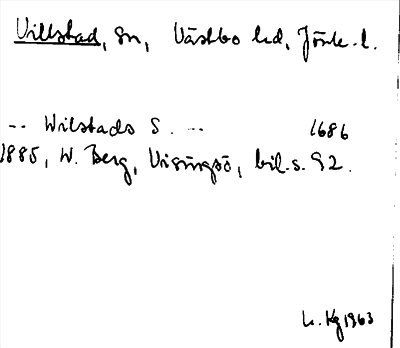 Villstad, sn, Västbo hd, Jönk. l.
-- Wilstads S. -- 1686
1885, W. Berg, Visingsö, bil. s. 92.
L. Kg 1963